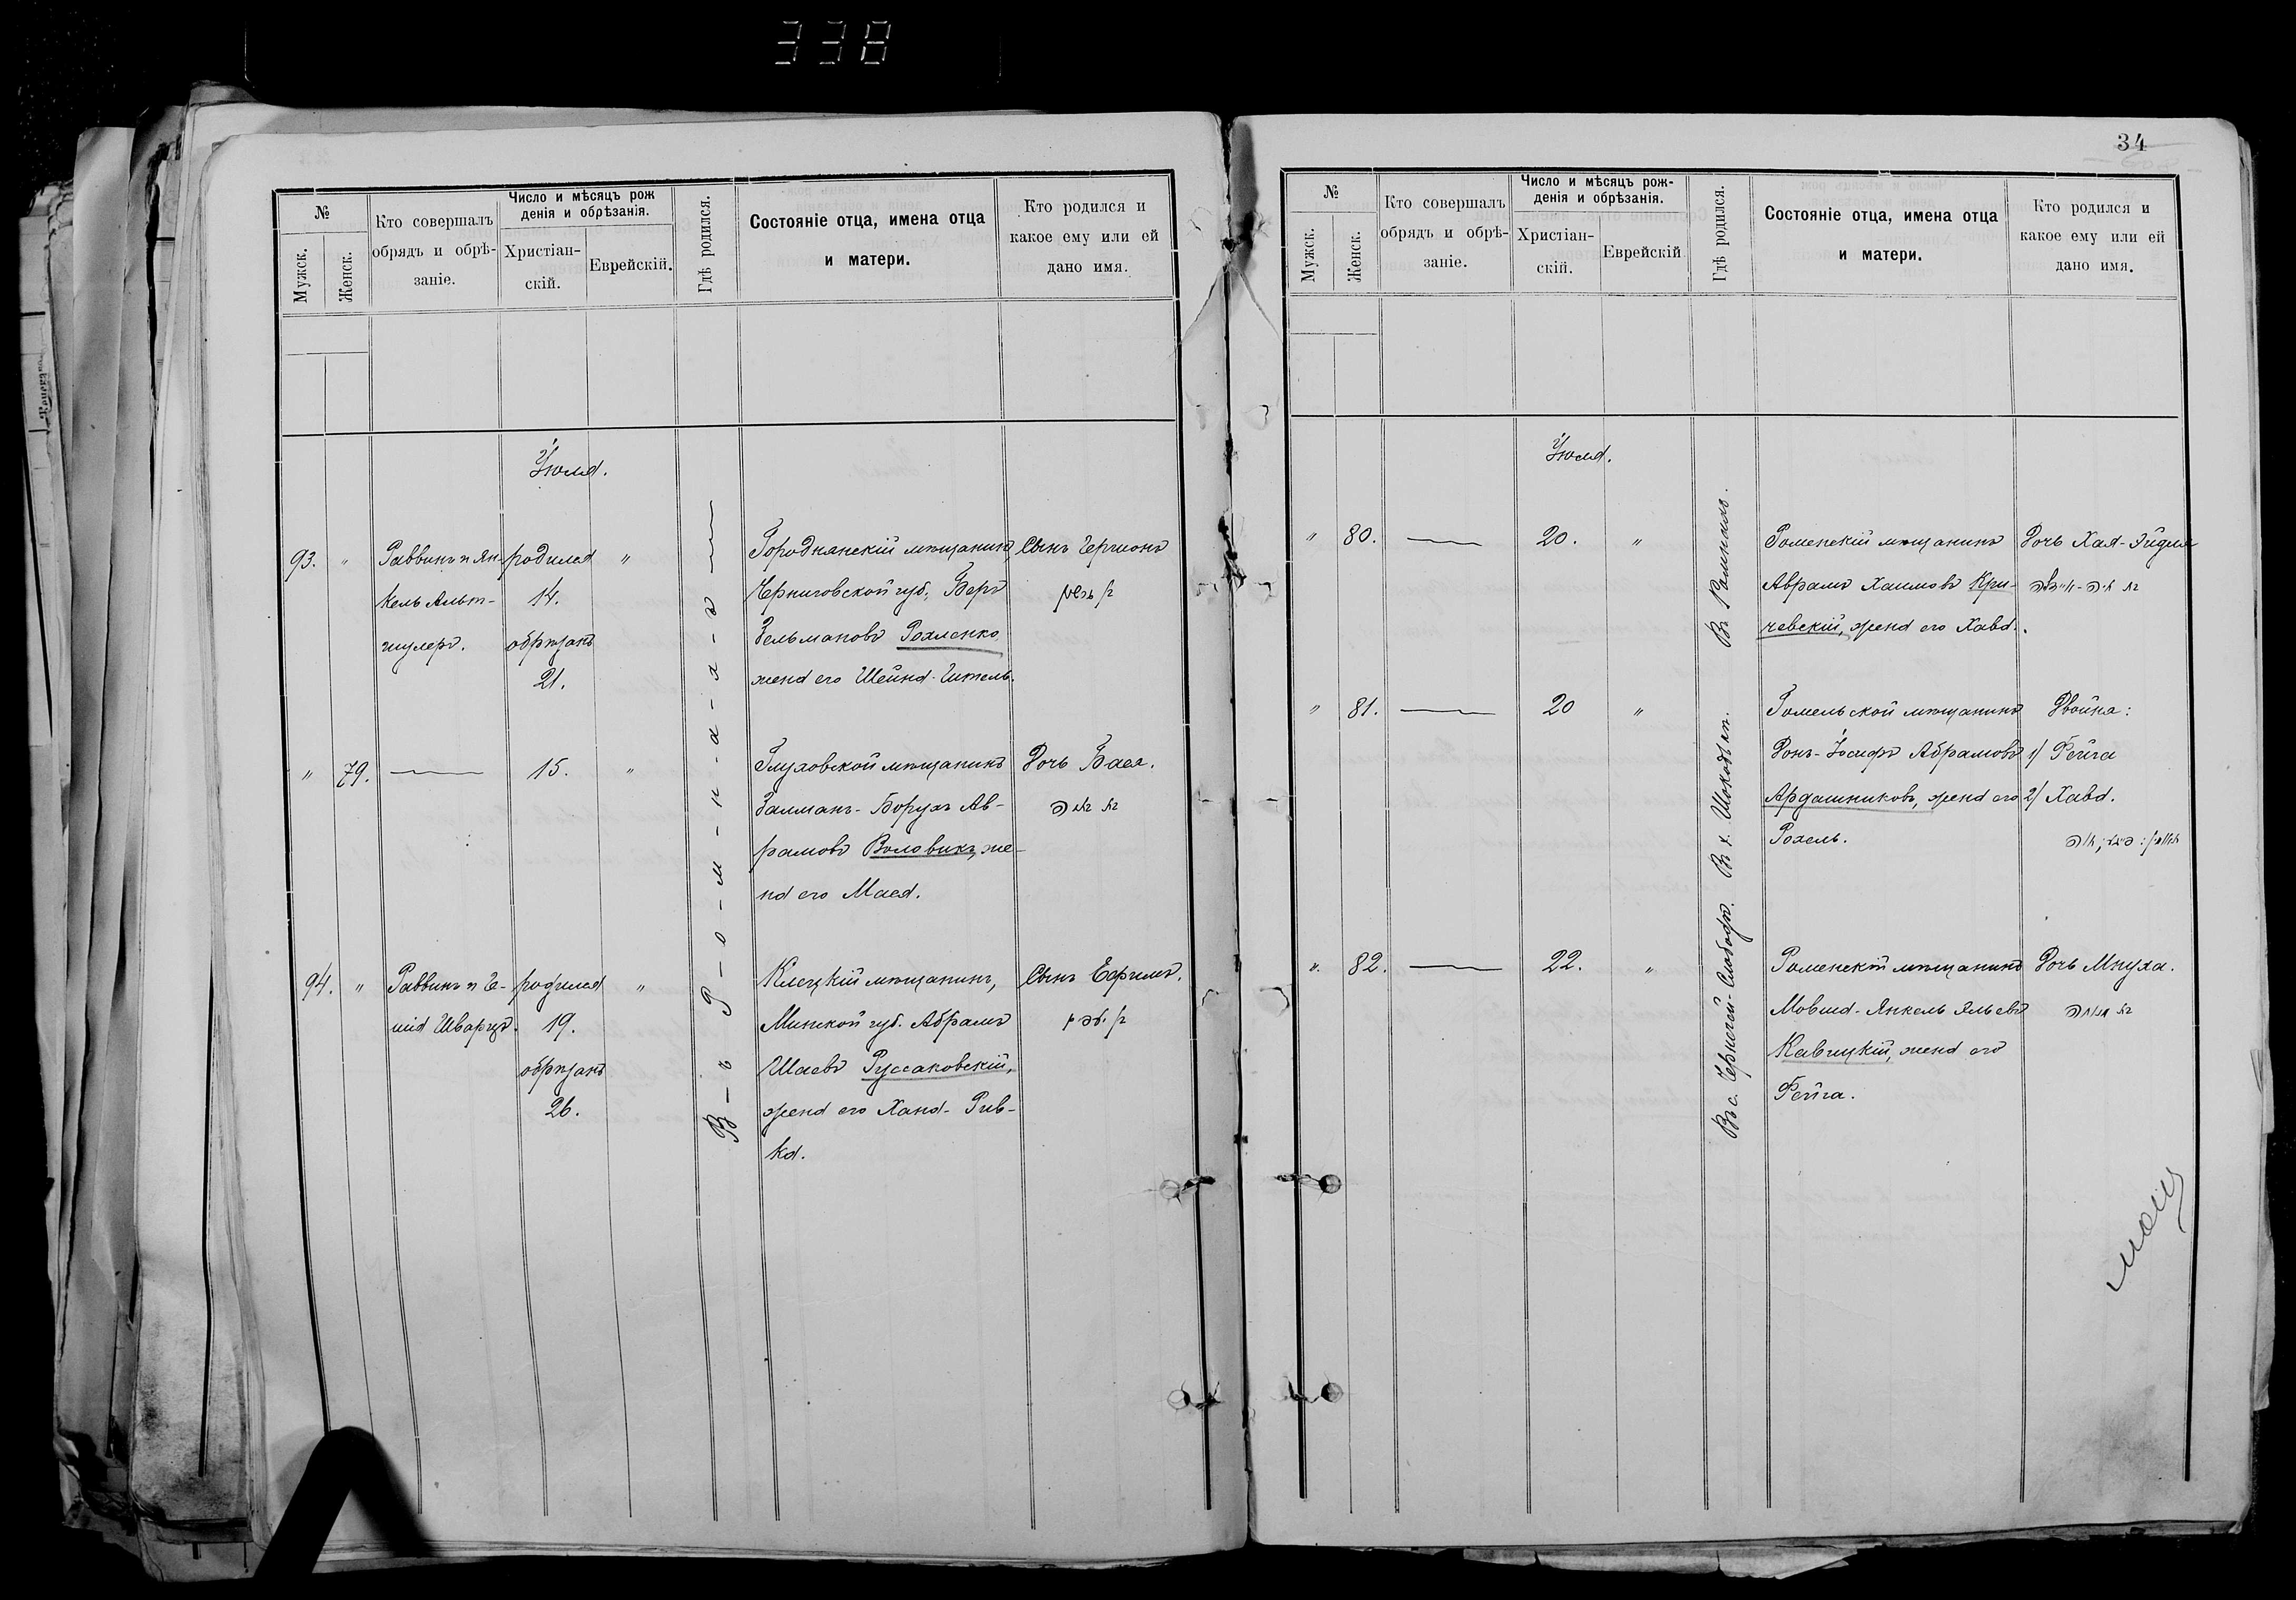 338
№
Мужск.
Женск.
Кто совершалъ
обрядъ и обрѣ-
заніе.
Число и мѣсяцъ рож
денія и обрѣзанія.
Христіан-
скій.
Еврейскій.
Гдѣ родился.
Состояніе отца, имена отца
и матери.
Кто родился и
какое ему или ей
дано имя.
Іюля.
93. "
Раввинъ и Ян-
кель Альт-
шулеръ.
родился
14.
обрѣзанъ
21.
"
В-ъ Р-о-м-н-а-х-ъ
Городнянскій мѣщанинъ,
Черниговской губ., Беръ
Зельмановъ Рохленко,
жена его Шейна-Гитель.
Сынъ Гершонъ
בן גרשון
" 79.
15.
"
Глуховской мѣщанинъ
Залманъ-Борухъ Аб-
рамовъ Воловикъ, же-
на его Мася.
Дочь Бася.
בת באסה
94. "
Раввинъ и
Шварцъ.
родился
19.
обрѣзанъ
26.
"
Клецкій мѣщанинъ,
Минской губ. Абрамъ
Шаевъ Руссаковскій,
жена его Хана-Рив-
ка.
Сынъ Ефраимъ.
34
№
Мужск.
Женск.
Кто совершалъ
обрядъ и обрѣ-
заніе.
Число и мѣсяцъ рож-
денія и обрѣзанія.
Христіан-
скій.
Еврейскій
Гдѣ родился.
Состояніе отца, имена отца
и матери.
Кто родился и
какое ему или ей
дано имя.
Іюля.
" 80.
20.
"
Въ Ромнахъ.
Роменскій мѣщанинъ
Аврамъ Хаимовъ Кри-
чевскій, жена его Хава.
Дочь Хая-Эйдля
" 81.
20
"
Гомельской мѣщанинъ
Іосифъ Абрамовъ
Ардашниковъ, жена его
Рохель.
Двойня:
1) Фейга
2) Хава.
" 82.
22.
"
Роменскій мѣщанинъ
Мовша-Янкель
жена его
Фейга.
Дочь Мнуха.
בת מנוחה